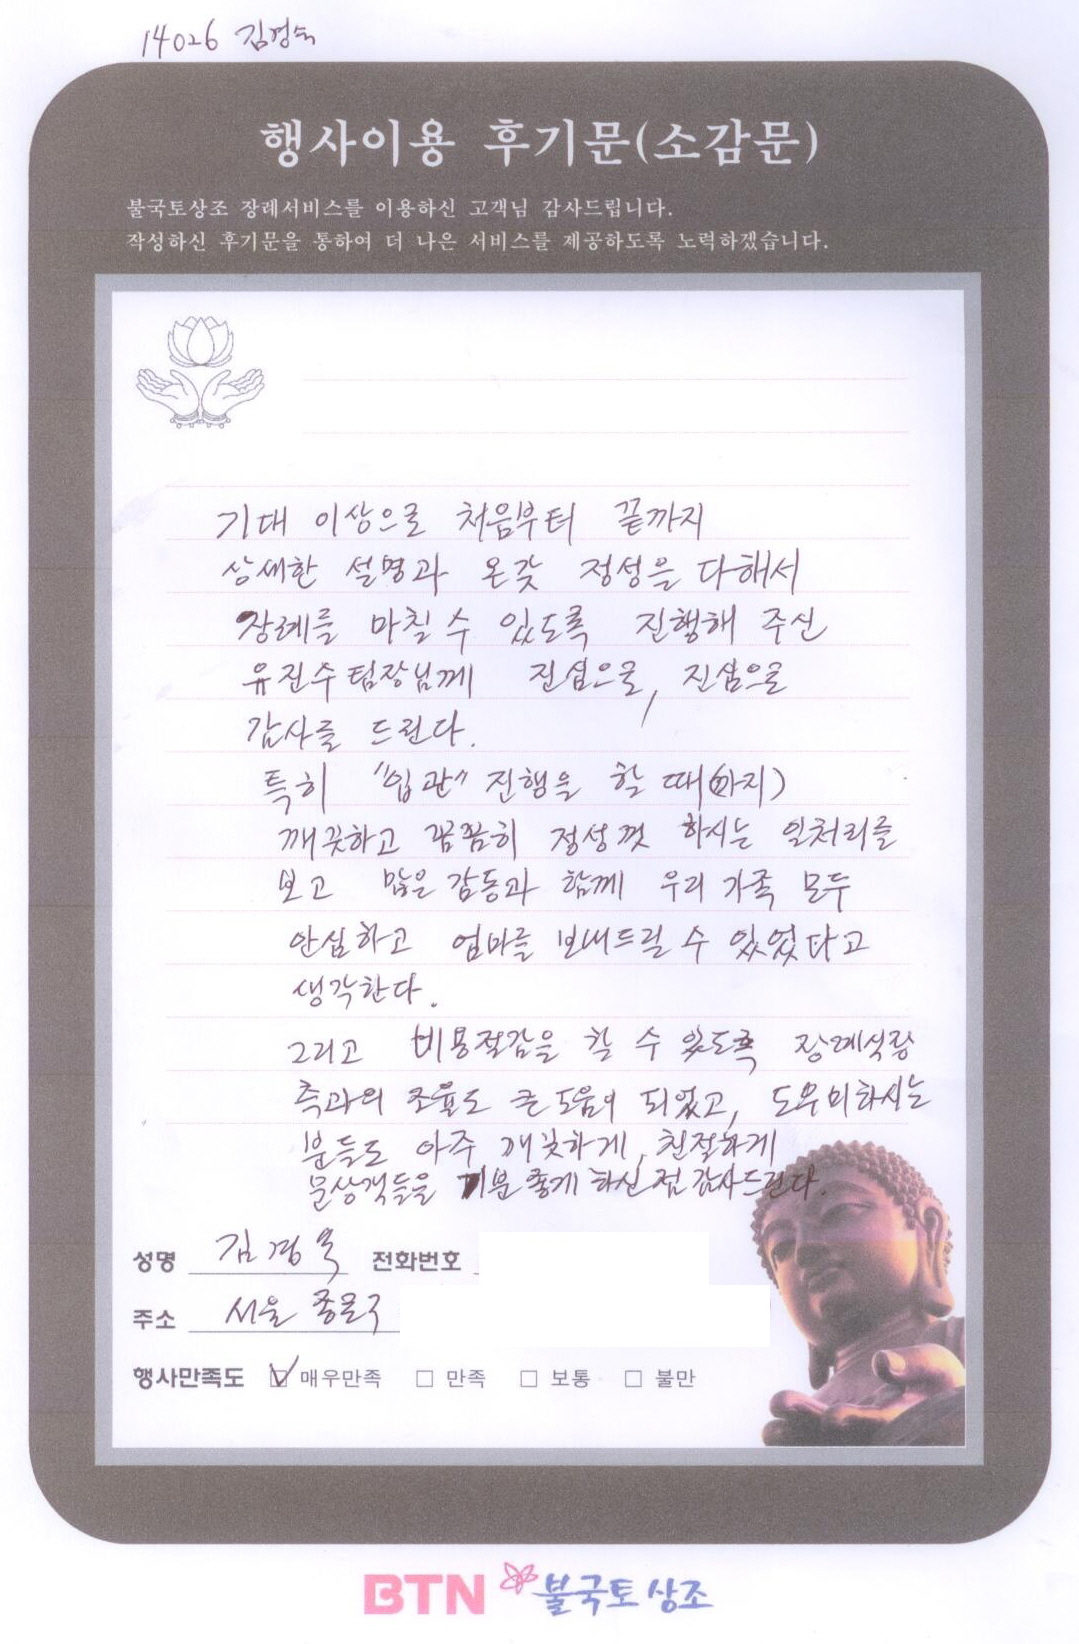 14026 김경숙
행사이용 후기문(소감문)
불국토상조 장례서비스를 이용하신 고객님 감사드립니다.
작성하신 후기문을 통하여 더 나은 서비스를 제공하도록 노력하겠습니다.
기대 이상으로 처음부터 끝까지
상세한 설명과 온갖 정성을 다해서
장례를 마칠 수 있도록 진행해 주신
유진수 팀장님께 진심으로, 진심으로
감사를 드린다.
특히 "입관" 진행을 할 때(까지)
깨끗하고 꼼꼼히 정성껏 하시는 일처리를
보고 많은 감동과 함께 우리 가족 모두
안심하고 엄마를 보내드릴 수 있었다고
생각한다.
그리고 비용절감을 할 수 있도록 장례식장
측과의 조율도 큰 도움이 되었고, 도우미하시는
분들도 아주 깨끗하게, 친절하게
문상객들을 기분 좋게 하신 점 감사드린다.
성명 김경숙 전화번호
주소 서울 종로구
행사만족도 ☑ 매우만족 □ 만족 □ 보통 □ 불만
BTN 불국토상조